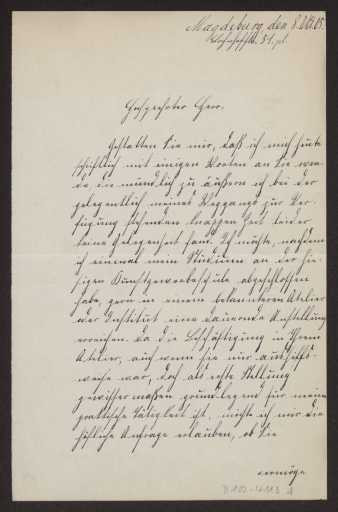 Magdeburg den 8. VIII 05.
Bahnhofstr. 51. pt.
Hochgeehrter Herr.
Gestatten Sie mir, daß ich mich heute
schriftlich mit einigen Worten an Sie wen-
de, da mündlich zu äußern ich bei der
gelegentlich meines Weggangs zur Ver-
fügung stehenden knappen Zeit leider
keine Gelegenheit fand. Ich möchte, nachdem
ich einmal mein Studium an der hie-
sigen Kunstgewerbeschule abgeschlossen
habe, gern in einem bekannteren Atelier
oder Institut eine dauernde Anstellung
erreichen. Da die Beschäftigung in Ihrem
Atelier, auch wenn sie nur aushilfs-
weise war, doch als erste Stellung
gewissermaßen grundlegend für meine
praktische Tätigkeit ist, möchte ich mir die
höfliche Anfrage erlauben, ob Sie
vermöge